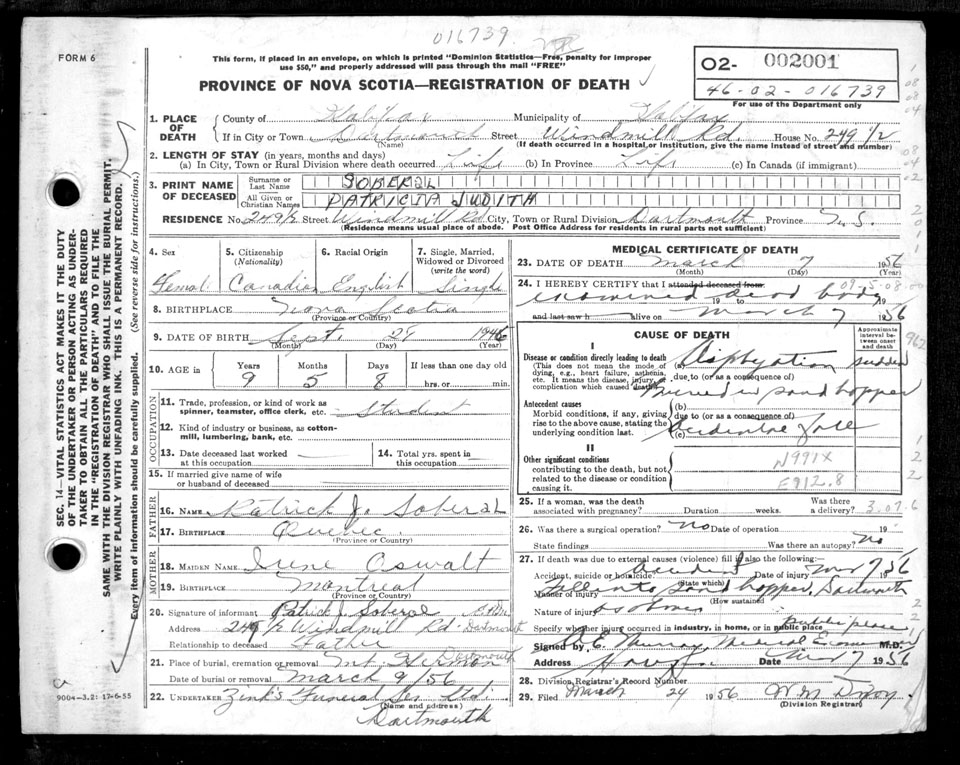 016739
FORM 6
This form, if placed in an envelope, on which is printed "Dominion Statistics—Free, penalty for improper
use $50," and properly addressed will pass through the mail "FREE"
PROVINCE OF NOVA SCOTIA—REGISTRATION OF DEATH
O2- 002001
46-02-016739
For use of the Department only
1. PLACE OF DEATH
County of Halifax Municipality of Halifax
If in City or Town Dartmouth Street Windmill Rd. House No. 249 1/2
(Name) (If death occurred in a hospital or institution, give the name instead of street and number)
2. LENGTH OF STAY (in years, months and days)
(a) In City, Town or Rural Division where death occurred Life (b) In Province Life (c) In Canada (if immigrant)
3. PRINT NAME OF DECEASED
Surname or Last Name SOBERAL
All Given or Christian Names PATRICIA JUDITH
RESIDENCE No. 249 1/2 Street Windmill Rd City, Town or Rural Division Dartmouth Province N.S.
(Residence means usual place of abode. Post Office Address for residents in rural parts not sufficient)
4. Sex 5. Citizenship (Nationality) 6. Racial Origin 7. Single, Married, Widowed or Divorced (write the word)
Femal Canadian English Single
8. BIRTHPLACE Nova Scotia
(Province or Country)
9. DATE OF BIRTH Sept. 29 1946
(Month) (Day) (Year)
10. AGE Years Months Days If less than one day old
9 5 8 hrs. or min.
OCCUPATION
11. Trade, profession, or kind of work as spinner, teamster, office clerk, etc. Student
12. Kind of industry or business, as cotton-mill, lumbering, bank, etc.
13. Date deceased last worked at this occupation
14. Total yrs. spent in this occupation
15. If married give name of wife or husband of deceased
FATHER
16. NAME Patrick J. Soberal
17. BIRTHPLACE Quebec
(Province or Country)
MOTHER
18. MAIDEN NAME Irene Oswalt
19. BIRTHPLACE Montreal
(Province or Country)
20. Signature of informant Patrick J. Soberal
Address 249 1/2 Windmill Rd. Dartmouth
Relationship to deceased Father
21. Place of burial, cremation or removal Mt. Hermon Dartmouth
Date of burial or removal March 9/56
22. UNDERTAKER Zink's Funeral Ser. Ltd.
(Name and address)
Dartmouth
MEDICAL CERTIFICATE OF DEATH
23. DATE OF DEATH March 7 1956
(Month) (Day) (Year)
24. I HEREBY CERTIFY that I attended deceased from:
examined dead body
19 to 19
and last saw h alive on March 7 1956
CAUSE OF DEATH
Approximate interval between onset and death
I
Disease or condition directly leading to death
(This does not mean the mode of dying, e.g., heart failure, asthenia, etc. It means the disease, injury, complication which caused death.)
(a) Asphyxiation sudden
due to (or as a consequence of)
Buried in sand hopper
Antecedent causes
Morbid conditions, if any, giving rise to the above cause, stating the underlying condition last.
(b)
due to (or as a consequence of)
(c) Accidental fall
II
Other significant conditions
contributing to the death, but not related to the disease or condition causing it.
N991X
E912.8
25. If a woman, was the death associated with pregnancy? Duration weeks. Was there a delivery?
26. Was there a surgical operation? No Date of operation 19
State findings Was there an autopsy? No
27. If death was due to external causes (violence) fill in also the following:
Accident, suicide or homicide? Accident Date of injury Mar 7 1956
(State which)
Manner of injury Fell into sand hopper, Dartmouth
(How sustained)
Nature of injury as above
Specify whether injury occurred in industry, in home, or in public place public place
Signed by Murray, Medical Examiner M.D.
Address Date Mar 7 1956
28. Division Registrar's Record Number
29. Filed March 24 1956 W M
(Division Registrar)
SEC. 14—VITAL STATISTICS ACT MAKES IT THE DUTY
OF THE UNDERTAKER OR PERSON ACTING AS UNDER-
TAKER TO OBTAIN ALL THE PARTICULARS REQUIRED
IN THE "REGISTRATION OF DEATH" AND TO FILE THE
SAME WITH THE DIVISION REGISTRAR WHO SHALL ISSUE THE BURIAL PERMIT.
WRITE PLAINLY WITH UNFADING INK. THIS IS A PERMANENT RECORD.
Every item of information should be carefully supplied. (See reverse side for instructions.)
9004-3.2: 17-6-55